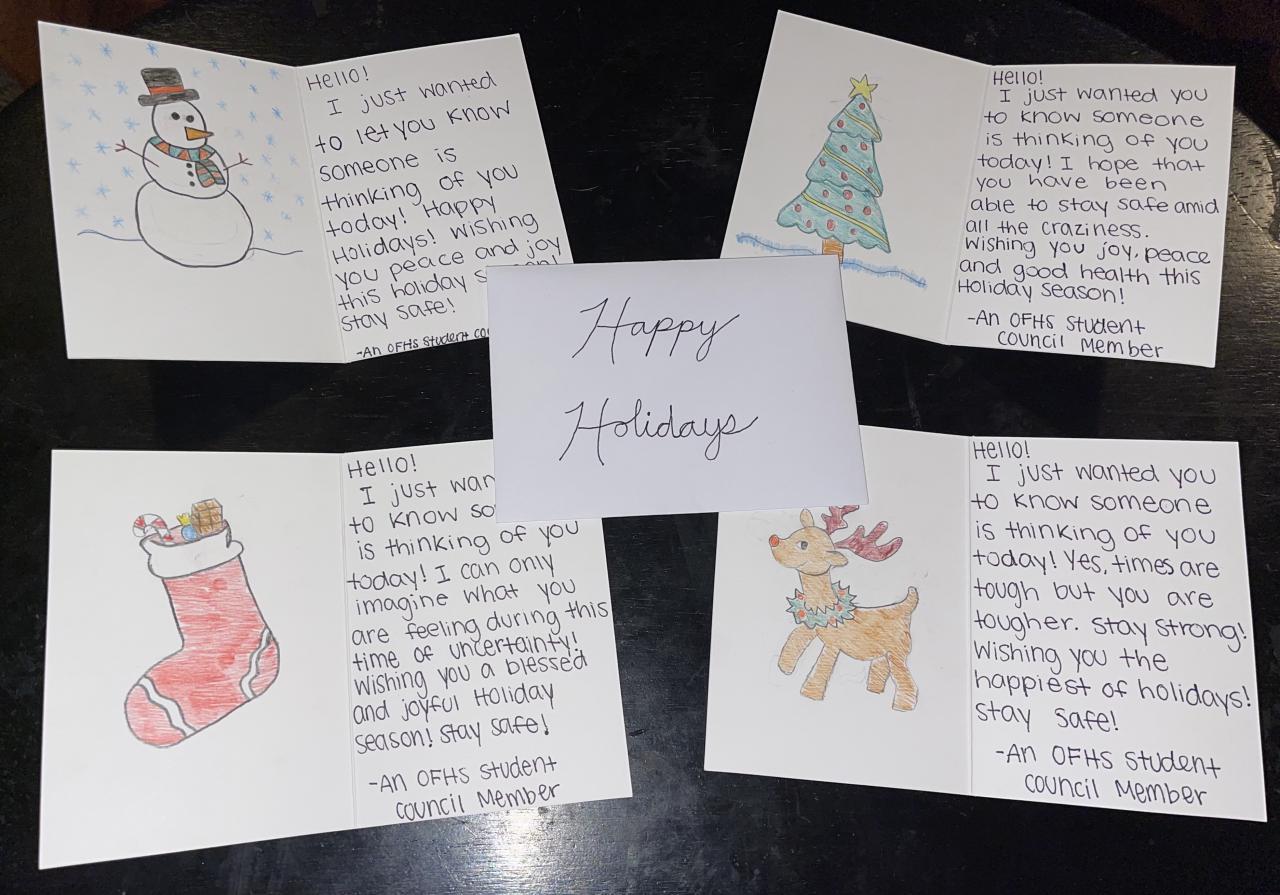 Hello!
I just wanted
to let you know
someone is
thinking of you
today! Happy
Holidays! Wishing
you peace and joy
this holiday
stay safe!
-An OFHS Student
Hello!
I just wanted you
to know someone
is thinking of you
today! I hope that
you have been
able to stay safe amid
all the craziness.
Wishing you joy, peace
and good health this
Holiday season!
-An OFHS Student
Council Member
Happy
Holidays
Hello!
I just
to know
is thinking of you
today! I can only
imagine what you
are feeling during this
time of uncertainty!
Wishing you a blessed
and joyful Holiday
season! Stay safe!
-An OFHS Student
Council Member
Hello!
I just wanted you
to know someone
is thinking of you
today! Yes, times are
tough but you are
tougher. Stay strong!
Wishing you the
happiest of holidays!
Stay safe!
-An OFHS Student
Council Member